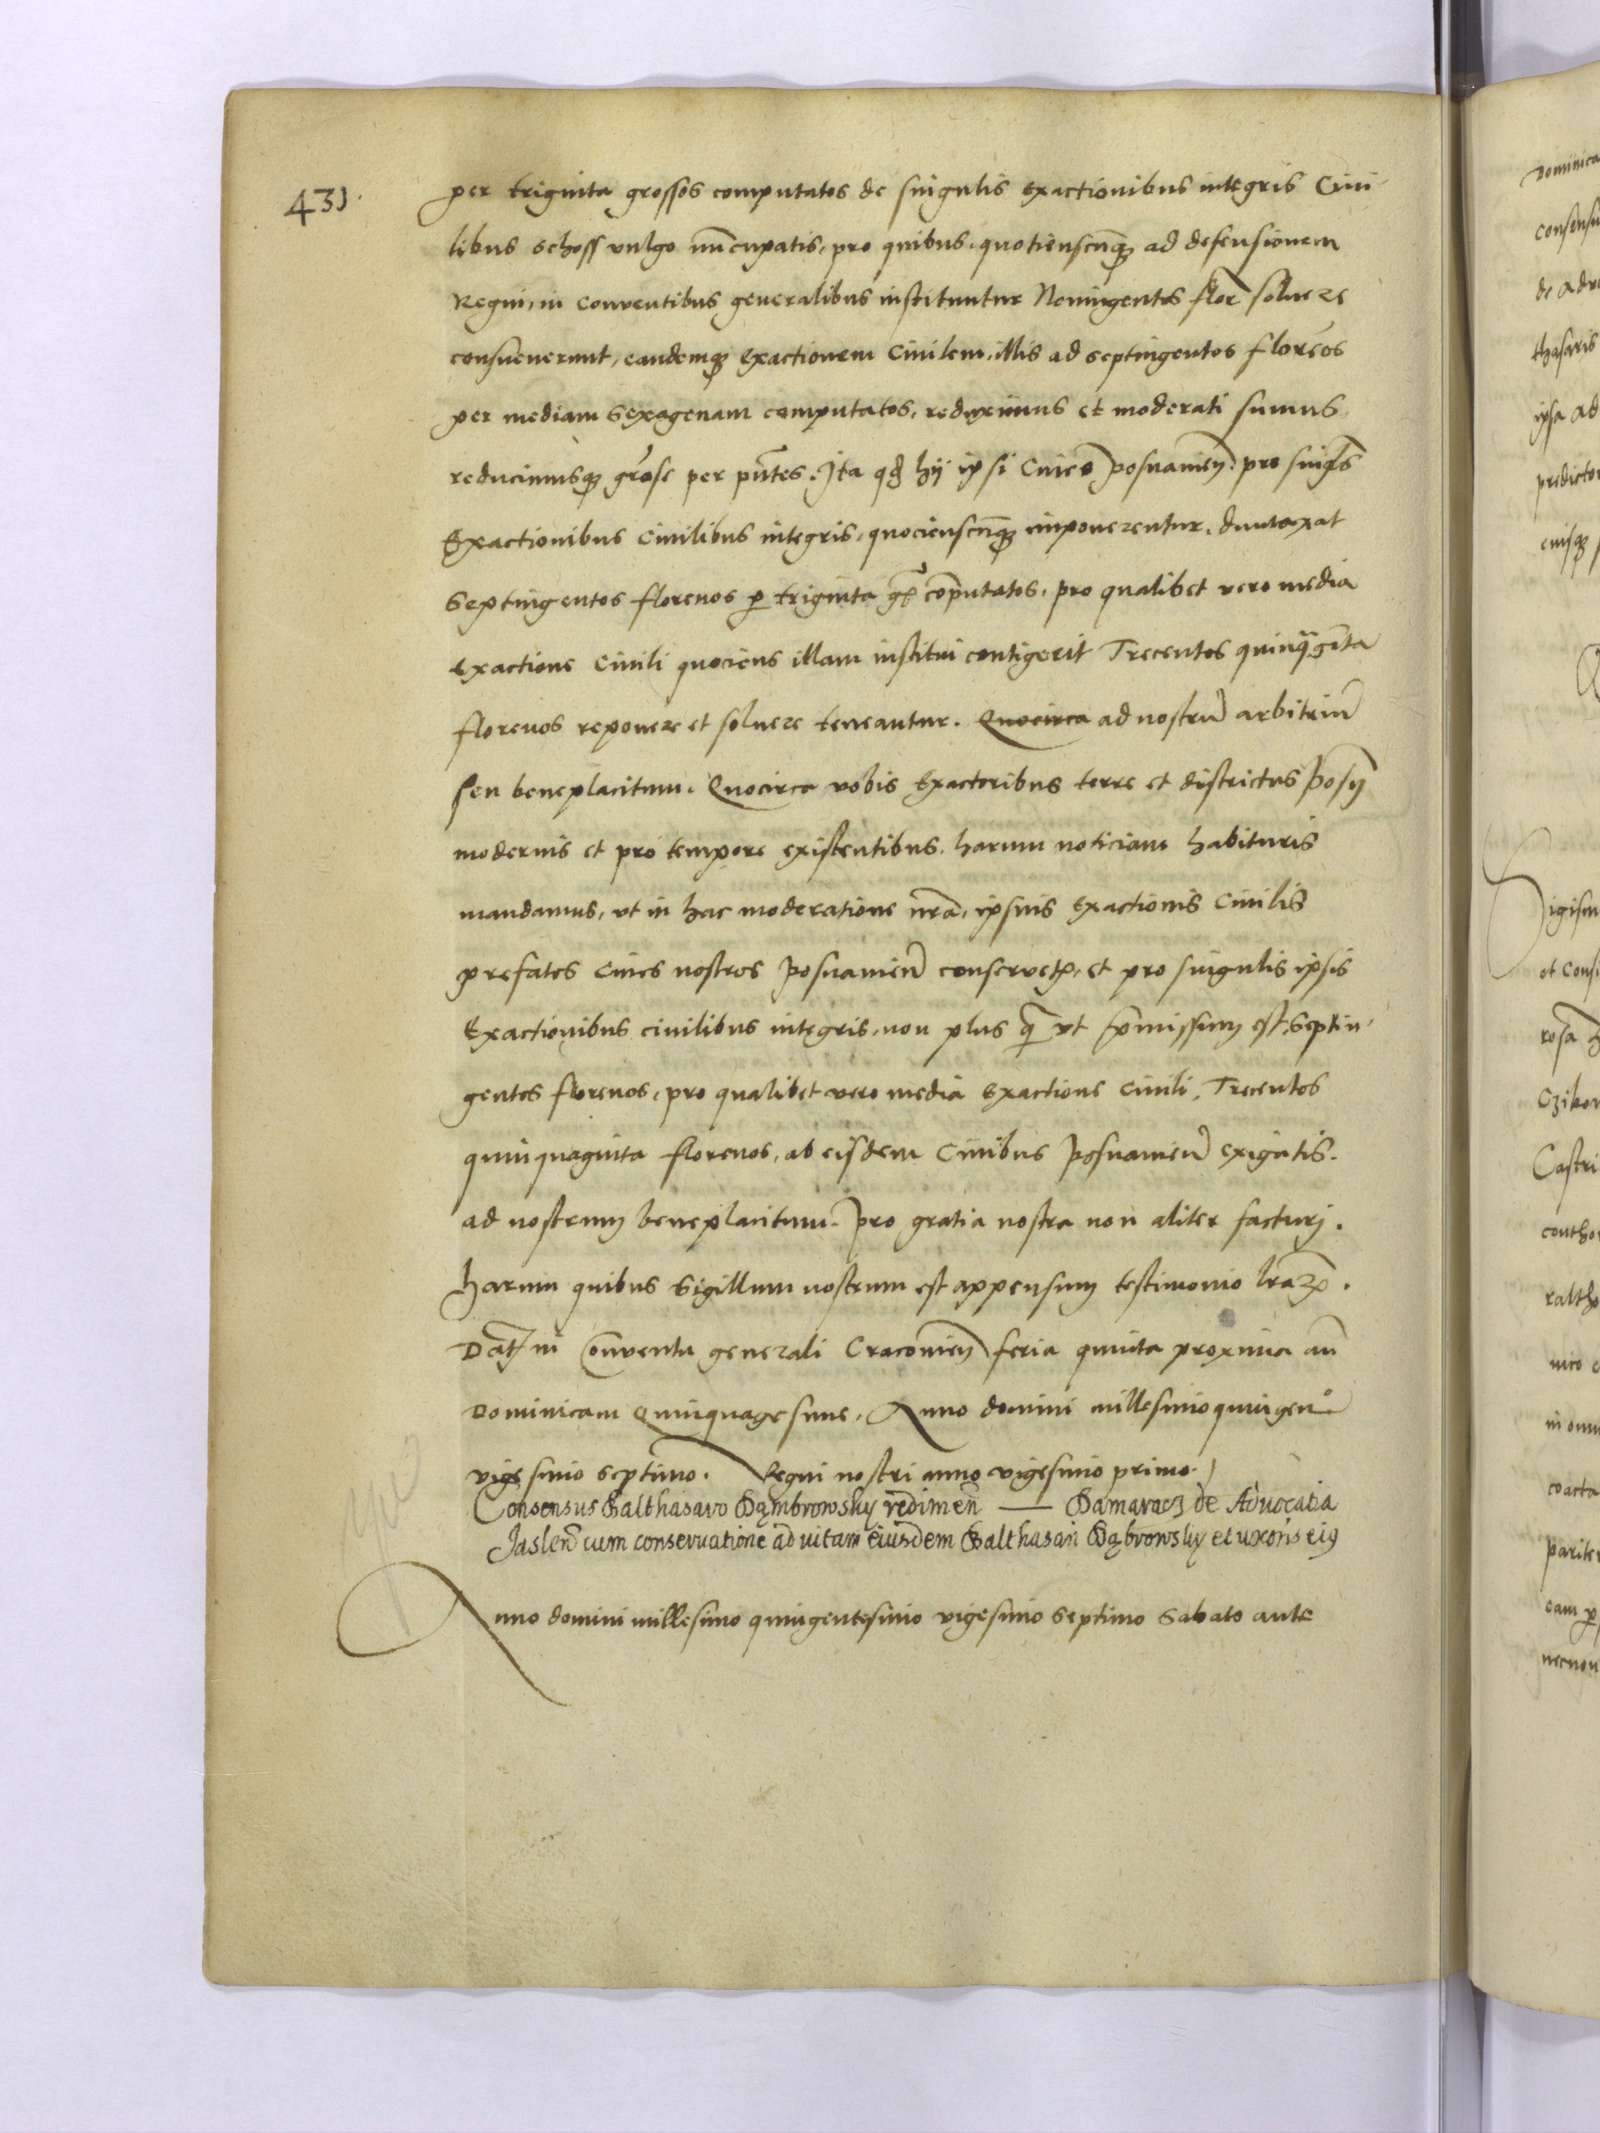 431.
per triginta grossos computatos de singulis exactionibus integris Ciui-
libus schoss vulgo nu̅cupatis, pro quibus, quotienscu̅q̅ꝫ ad defensionem
Regni, in conventibus generalibus instituntur Noningentos flor̅ soluere
consueuerunt, eandemqꝫ exactionem Ciuilem, illis ad septingentos flore̅os
per mediam sexagenam computatos, reduximus et moderati sumus
reducimusqꝫ gr̅ose per pn̅tes. Ita qd̅ hij ipsi Ciues Posnanien̅. pro sing̅ls
Exactionibus Ciuilibus integris, quocienscu̅q̅ꝫ imponerentur, duntaxat
Septingentos florenos ꝑ triginta gr̅ co̅putatos, pro qualibet vero media
exactione Ciuili quociens illam institui contigerit Trecentos quinq̅gi̅ta
florenos reponere et soluere teneantur. Quocirca ad nostru̅ arbitriu̅
seu beneplacitum. Quocirca vobis Exactoribus terre et districtus Posn̅
modernis et pro tempore existentibus, harum noticiam habituris
mandamus, vt in hac moderatione nr̅a, ipsius exactionis Ciuilis
prefatos Ciues nostros Posnanien̅ conservet̅, et pro singulis ipsis
Exactionibus ciuilibus integris, non plus q̅ vt p̅missum est, Septin-
gentos florenos, pro qualibet vero media exactione Ciuili, Trecentos
quinquaginta florenos, ab eisdem Ciuibus Posnanien̅ exigatis.
ad nostrum beneplacitum. Pro gratia nostra non aliter facturj.
harum quibus Sigillum nostrum est appensum testimonio lr̅aꝝ.
Dat̅ in Co̅nventu generali Cracouien̅ feria quinta proxima an̅
Dominicam Quinquagesime, Anno domini millesimo quingen̅o
vigesimo septimo. Regni nostri anno vigesimo primo.
Consensus Balthasaro Dąmbrowsky redimen̅ — Damaracz de Aduocatia
Jaslen̅ cum conseruatione ad uitam eiusdem Balthasari Dąbrowsky et uxoris eiꝰ
Anno domini millesimo quingentesimo vigesimo septimo Sabato ante
Dominica
consensu
de adu
thasaris
ipsa ad
predicto
eiusqꝫ
Sigism
et Consi
rosa
Czikow
Castri
ralth
nico
in omn
coacta
pariter
cam ꝑ
necnon